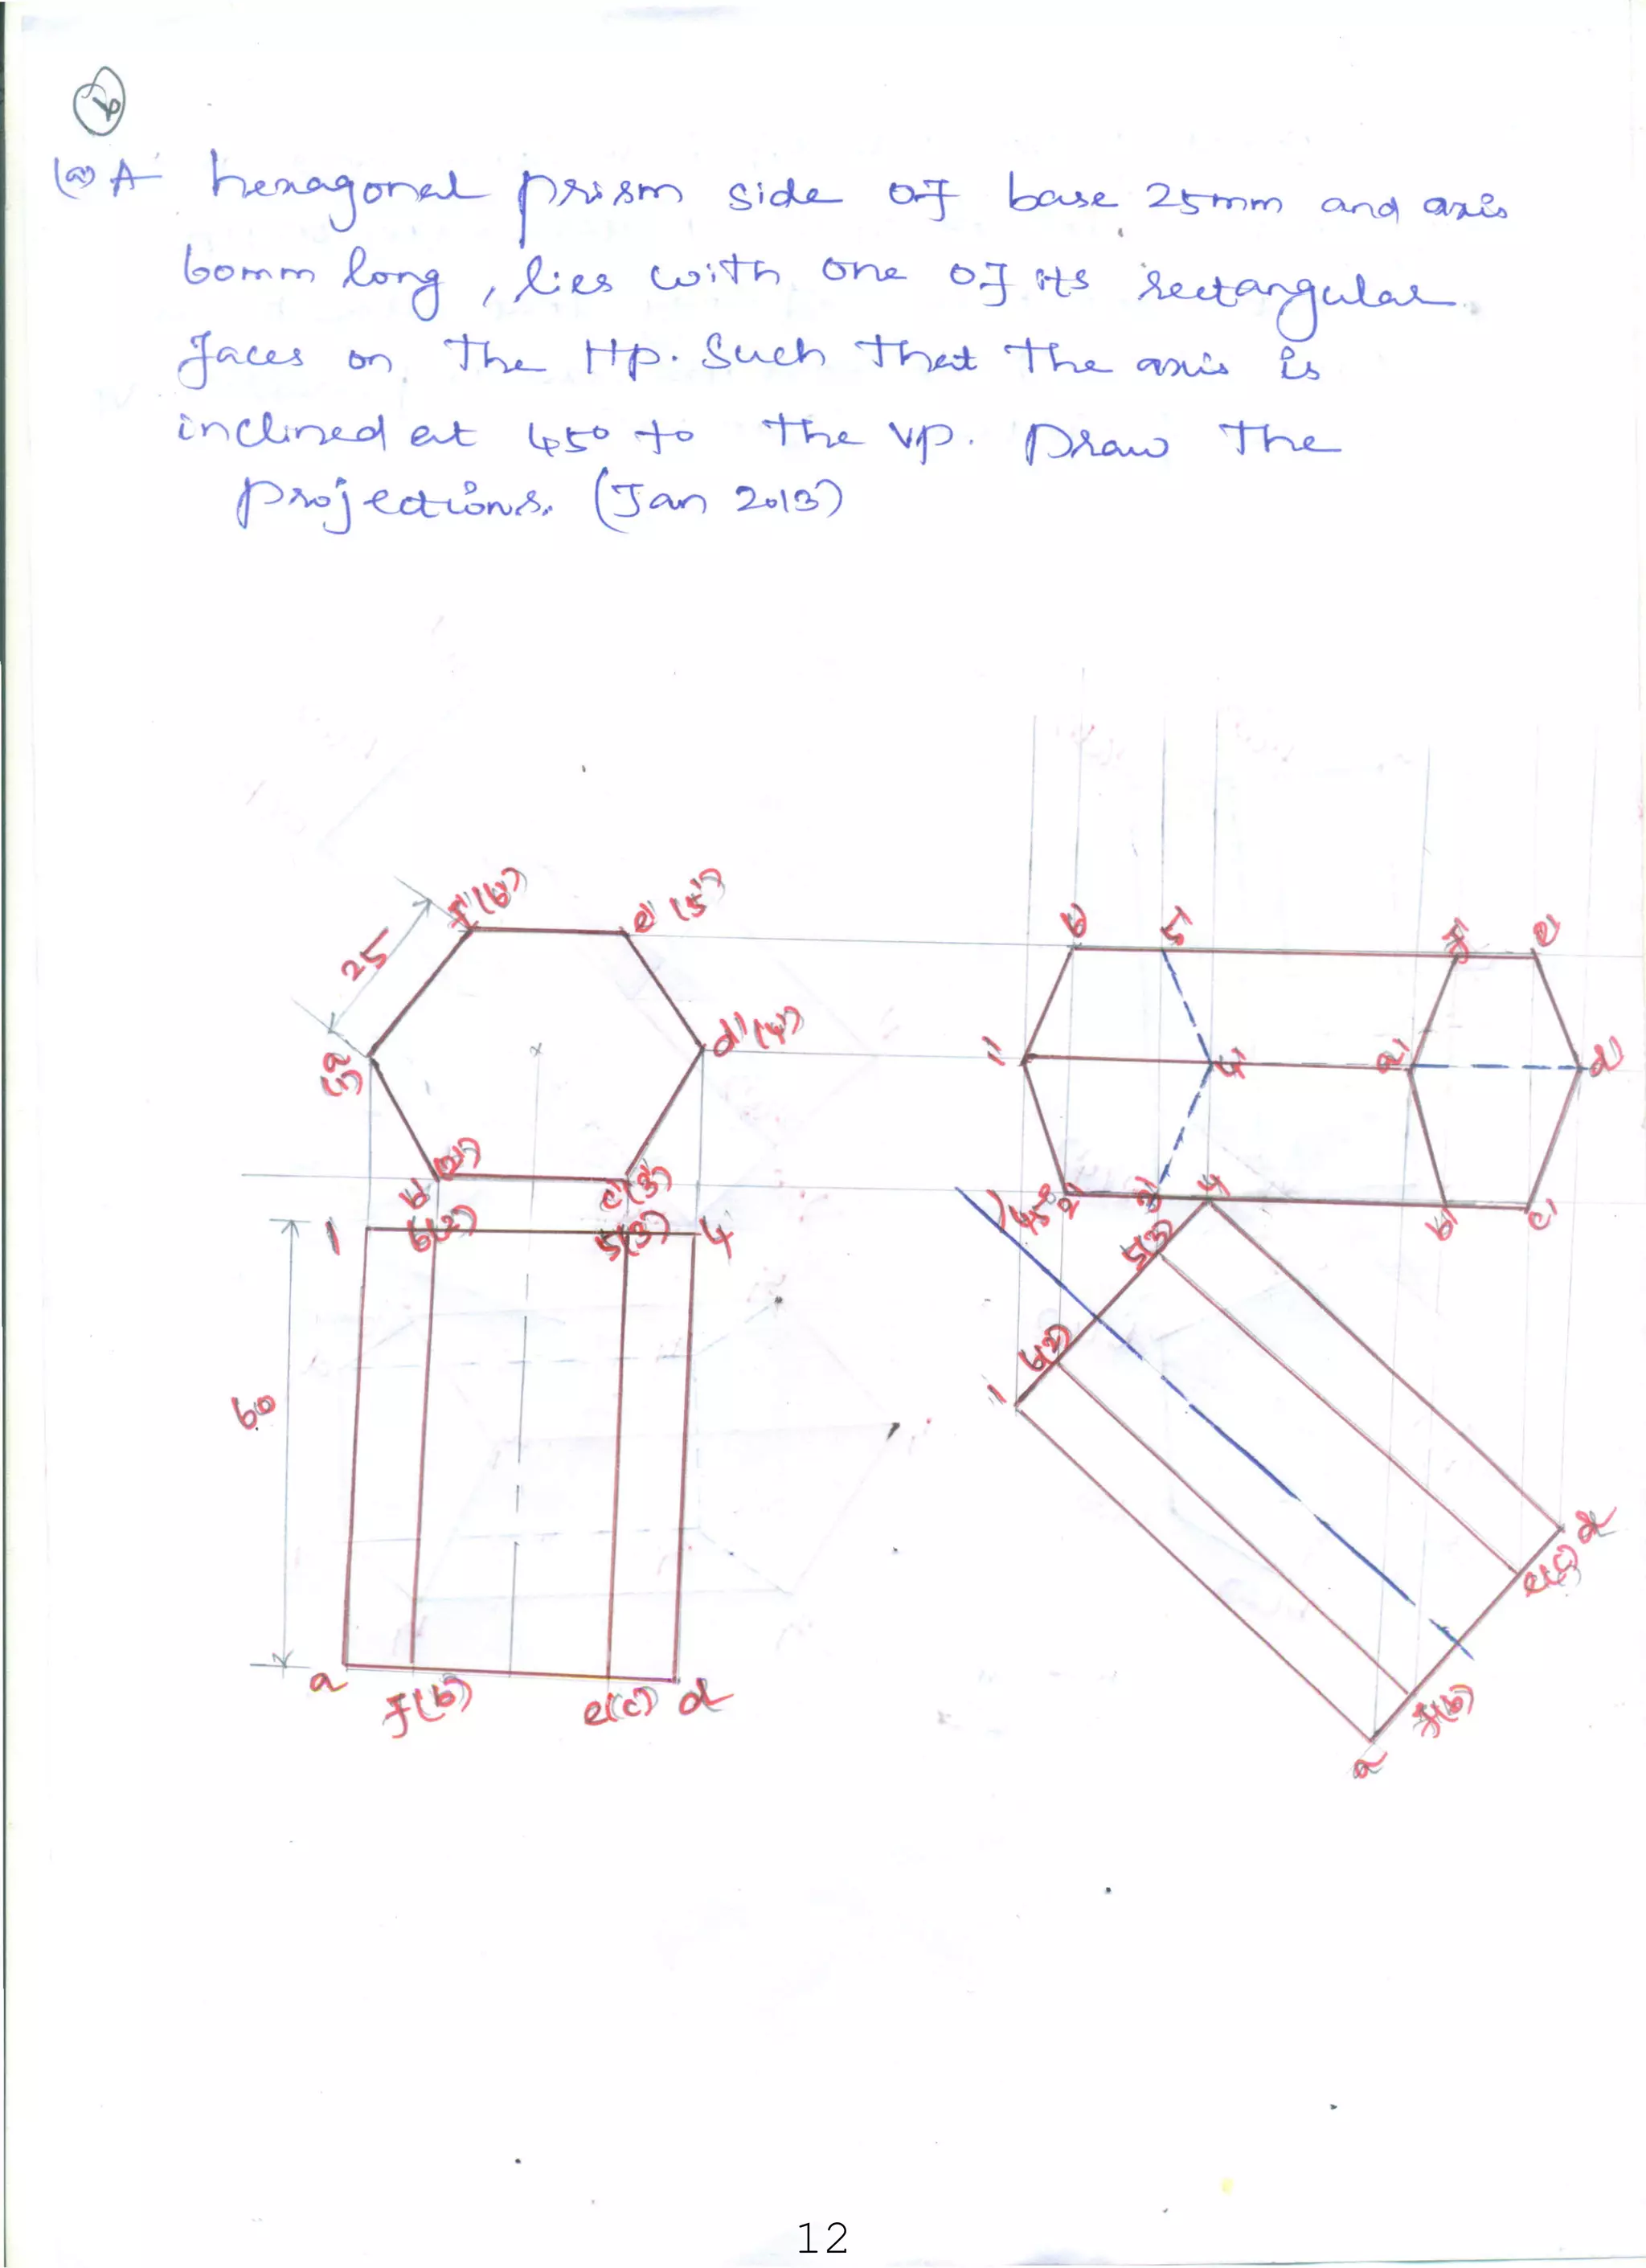 (a) A hexagonal prism side of base 25mm and axis
60mm long, lies with one of its rectangular
faces on the HP. Such that the axis is
inclined at 45° to the VP. Draw the
projections. (Jan 2013)
f'(6') e' (5')
25
6' 5' f' e'
d'(4')
a'
(1')
1' 4' a' d'
b'(2') c'(3')
45° 2' 3' 4 b' c'
1 6(2) 5(3) 4
5(3)
6(2)
60
1
d
e(c)
a f(b) e(c) d
f(b)
a
12